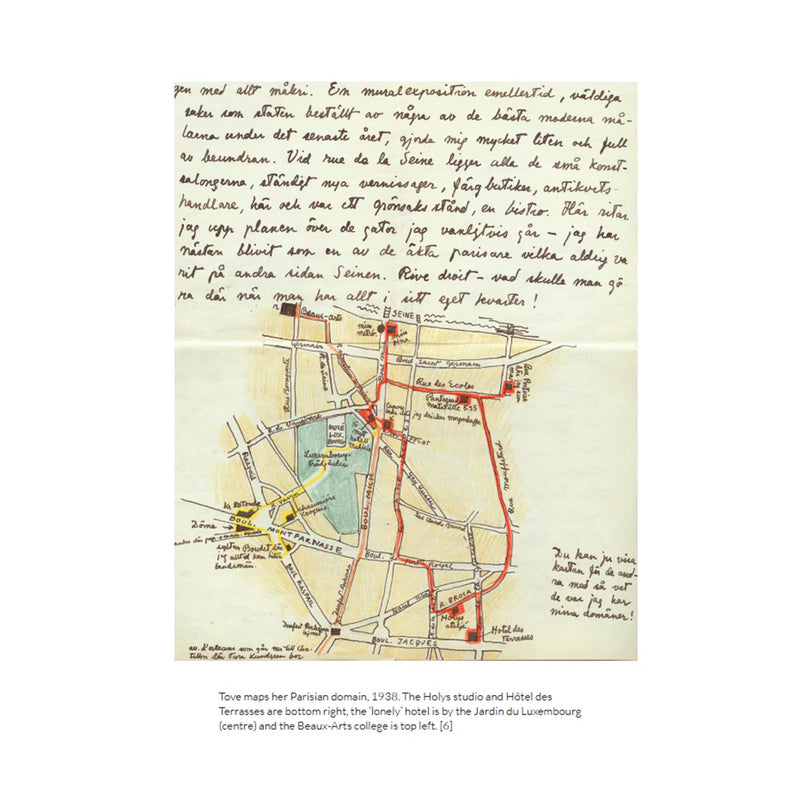 gen med allt måkri. En muralexposition emellertid, väldiga
saker som staten beställt av några av de bästa moderna må-
larna under det senaste året, gjorde mig mycket liten och full
av beundran. Vid rue de la Seine ligger alla de små konst-
salongerna, ständigt nya vernissager, färgbutiker, antikvitets-
handlare, här och var ett grönsaksstånd, en bistro. Här ritar
jag upp planen över de gator jag vanligtvis går – jag har
nästan blivit som en av de äkta parisare vilka aldrig va
rit på andra sidan Seinen. Rive droit – vad skulle man gö
ra där när man har allt i sitt eget kvarter!
Beaux-arts
SEINE
min
metro.
Boul. Saint Germain
Germain
Rue Bonaparte
R. de Seine
Boul Mich
Rue des Ecoles
Pantagruel
jag dricker morgonkaffe
R. de Vaugirard
Luxembourg-
trädgården
BOUL. MICH
Raspail
La Rotonde
Dôme
BOUL. MONTPARNASSE
Chaumière
Boul. Port Royal
BOUL RASPAIL
R. BROCA
Holys
ateljé
Hotel des
Terrasses
BOUL. JACQUES
av. d'orleans som går ner till Cha-
tillon där Tora Lundgren bor
Du kan ju visa
kartan för de and-
ra med så vet
de var jag har
mina domäner!
Tove maps her Parisian domain, 1938. The Holys studio and Hôtel des
Terrasses are bottom right, the ‘lonely’ hotel is by the Jardin du Luxembourg
(centre) and the Beaux-Arts college is top left. [6]